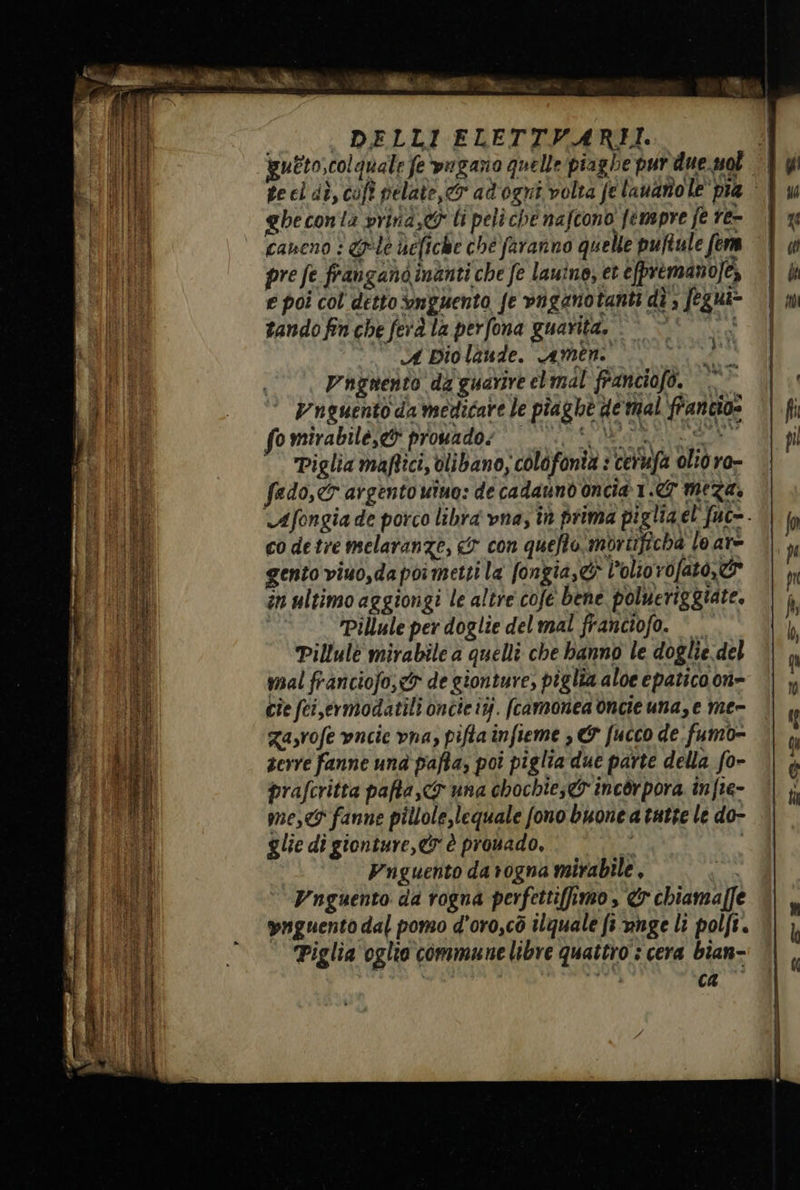 DELLI ELETTVARII.
guẽto, col quale se vngano quelle piaghe pur due uol
te el dì, cosi pelate, & ad ogni volta se lauano le pia
ghe con la vrina, & li peli che nascono sempre se re-
caueno : & le uesiche che saranno quelle pustule sem
pre se frangano inanti che se lauino, et espremanose,
e poi col detto vnguento se vnganotanti dì, segui-
tando fin che serà la persona guarita.
A Dio laude. Amen.
Vnguento da guarire el mal francioso.
Vnguento da medicare le piaghe de mal francio-
so mirabile, & prouado.
Piglia mastici, olibano, colofonia : cerusa olio ro-
sado, & argento uiuo: de cadauno oncia 1. & meza.
Asongia de porco libra vna, in prima piglia el suc-
co de tre melaranze, & con questo mortificha lo ar-
gento viuo, da poi metti la songia, & l'olio rosato, &
in ultimo aggiongi le altre cose bene polueriggiate.
Pillule per doglie del mal francioso.
Pillule mirabile a quelli che hanno le doglie del
mal francioso, & de gionture, piglia aloe epatico on-
cie sei, ermodatili oncie iij. scamonea oncie una, e me-
za, rose vncie vna, pista insieme, & succo de fumo-
terre fanne una pasta, poi piglia due parte della so-
prascritta pasta, & una chochie, & incorpora insie-
me, & fanne pillole, lequale sono buone a tutte le do-
glie di gionture, & è prouado.
Vnguento da rogna mirabile.
Vnguento da rogna perfettissimo, & chiamasse
vnguento dal pomo d'oro, cõ ilquale si vnge li polsi.
Piglia oglio commune libre quattro : cera bian-
ca